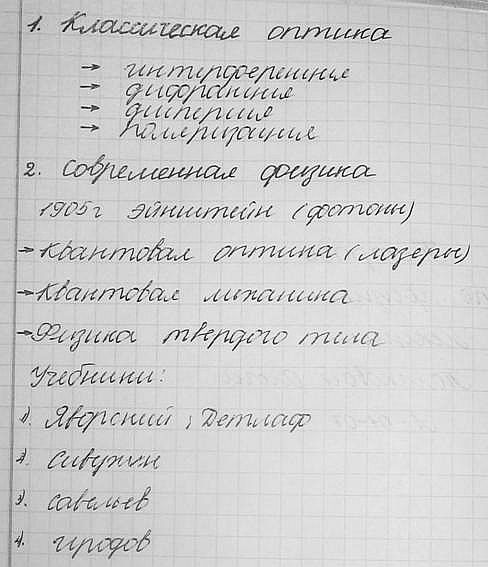 1. Классическая оптика
→ интерференция
→ дифракция
→ дисперсия
→ поляризация
2. Современная физика
1905г Эйнштейн (фотоны)
→ Квантовая оптика (лазеры)
→ Квантовая механика
→ Физика твердого тела
Учебники:
1). Яворский, Детлаф
2). Сивухин
3). Савельев
4. Иродов